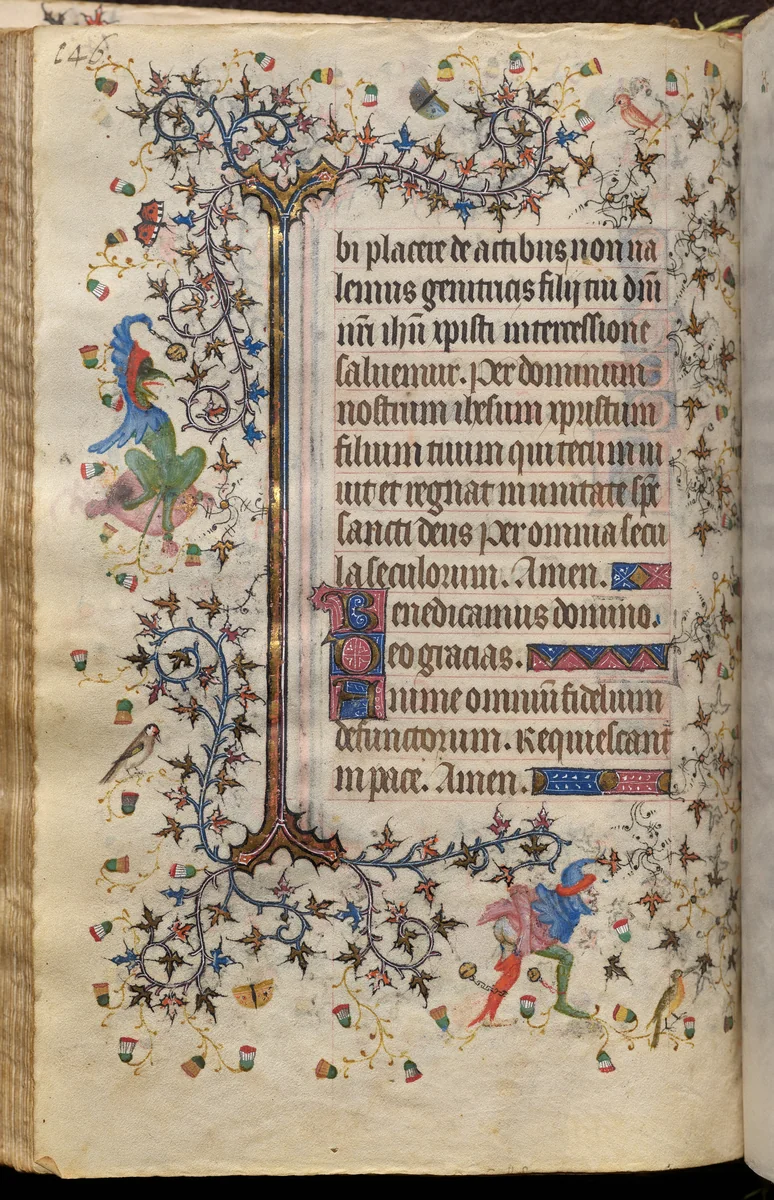 146
bi placere de actibus non ua
lemus genitricis filij tui dm̄i
nr̄i ihū xpisti intercessione
saluemur. Per dominum
nostrum ihesum xpristum
filium tuum qui tecum ui
uit et regnat in unitate sp̄s
sancti deus per omnia secu
la seculorum. Amen.
Benedicamus domino.
Deo gracias.
Anime omniū fidelium
defunctorum. Requiescant
in pace. Amen.